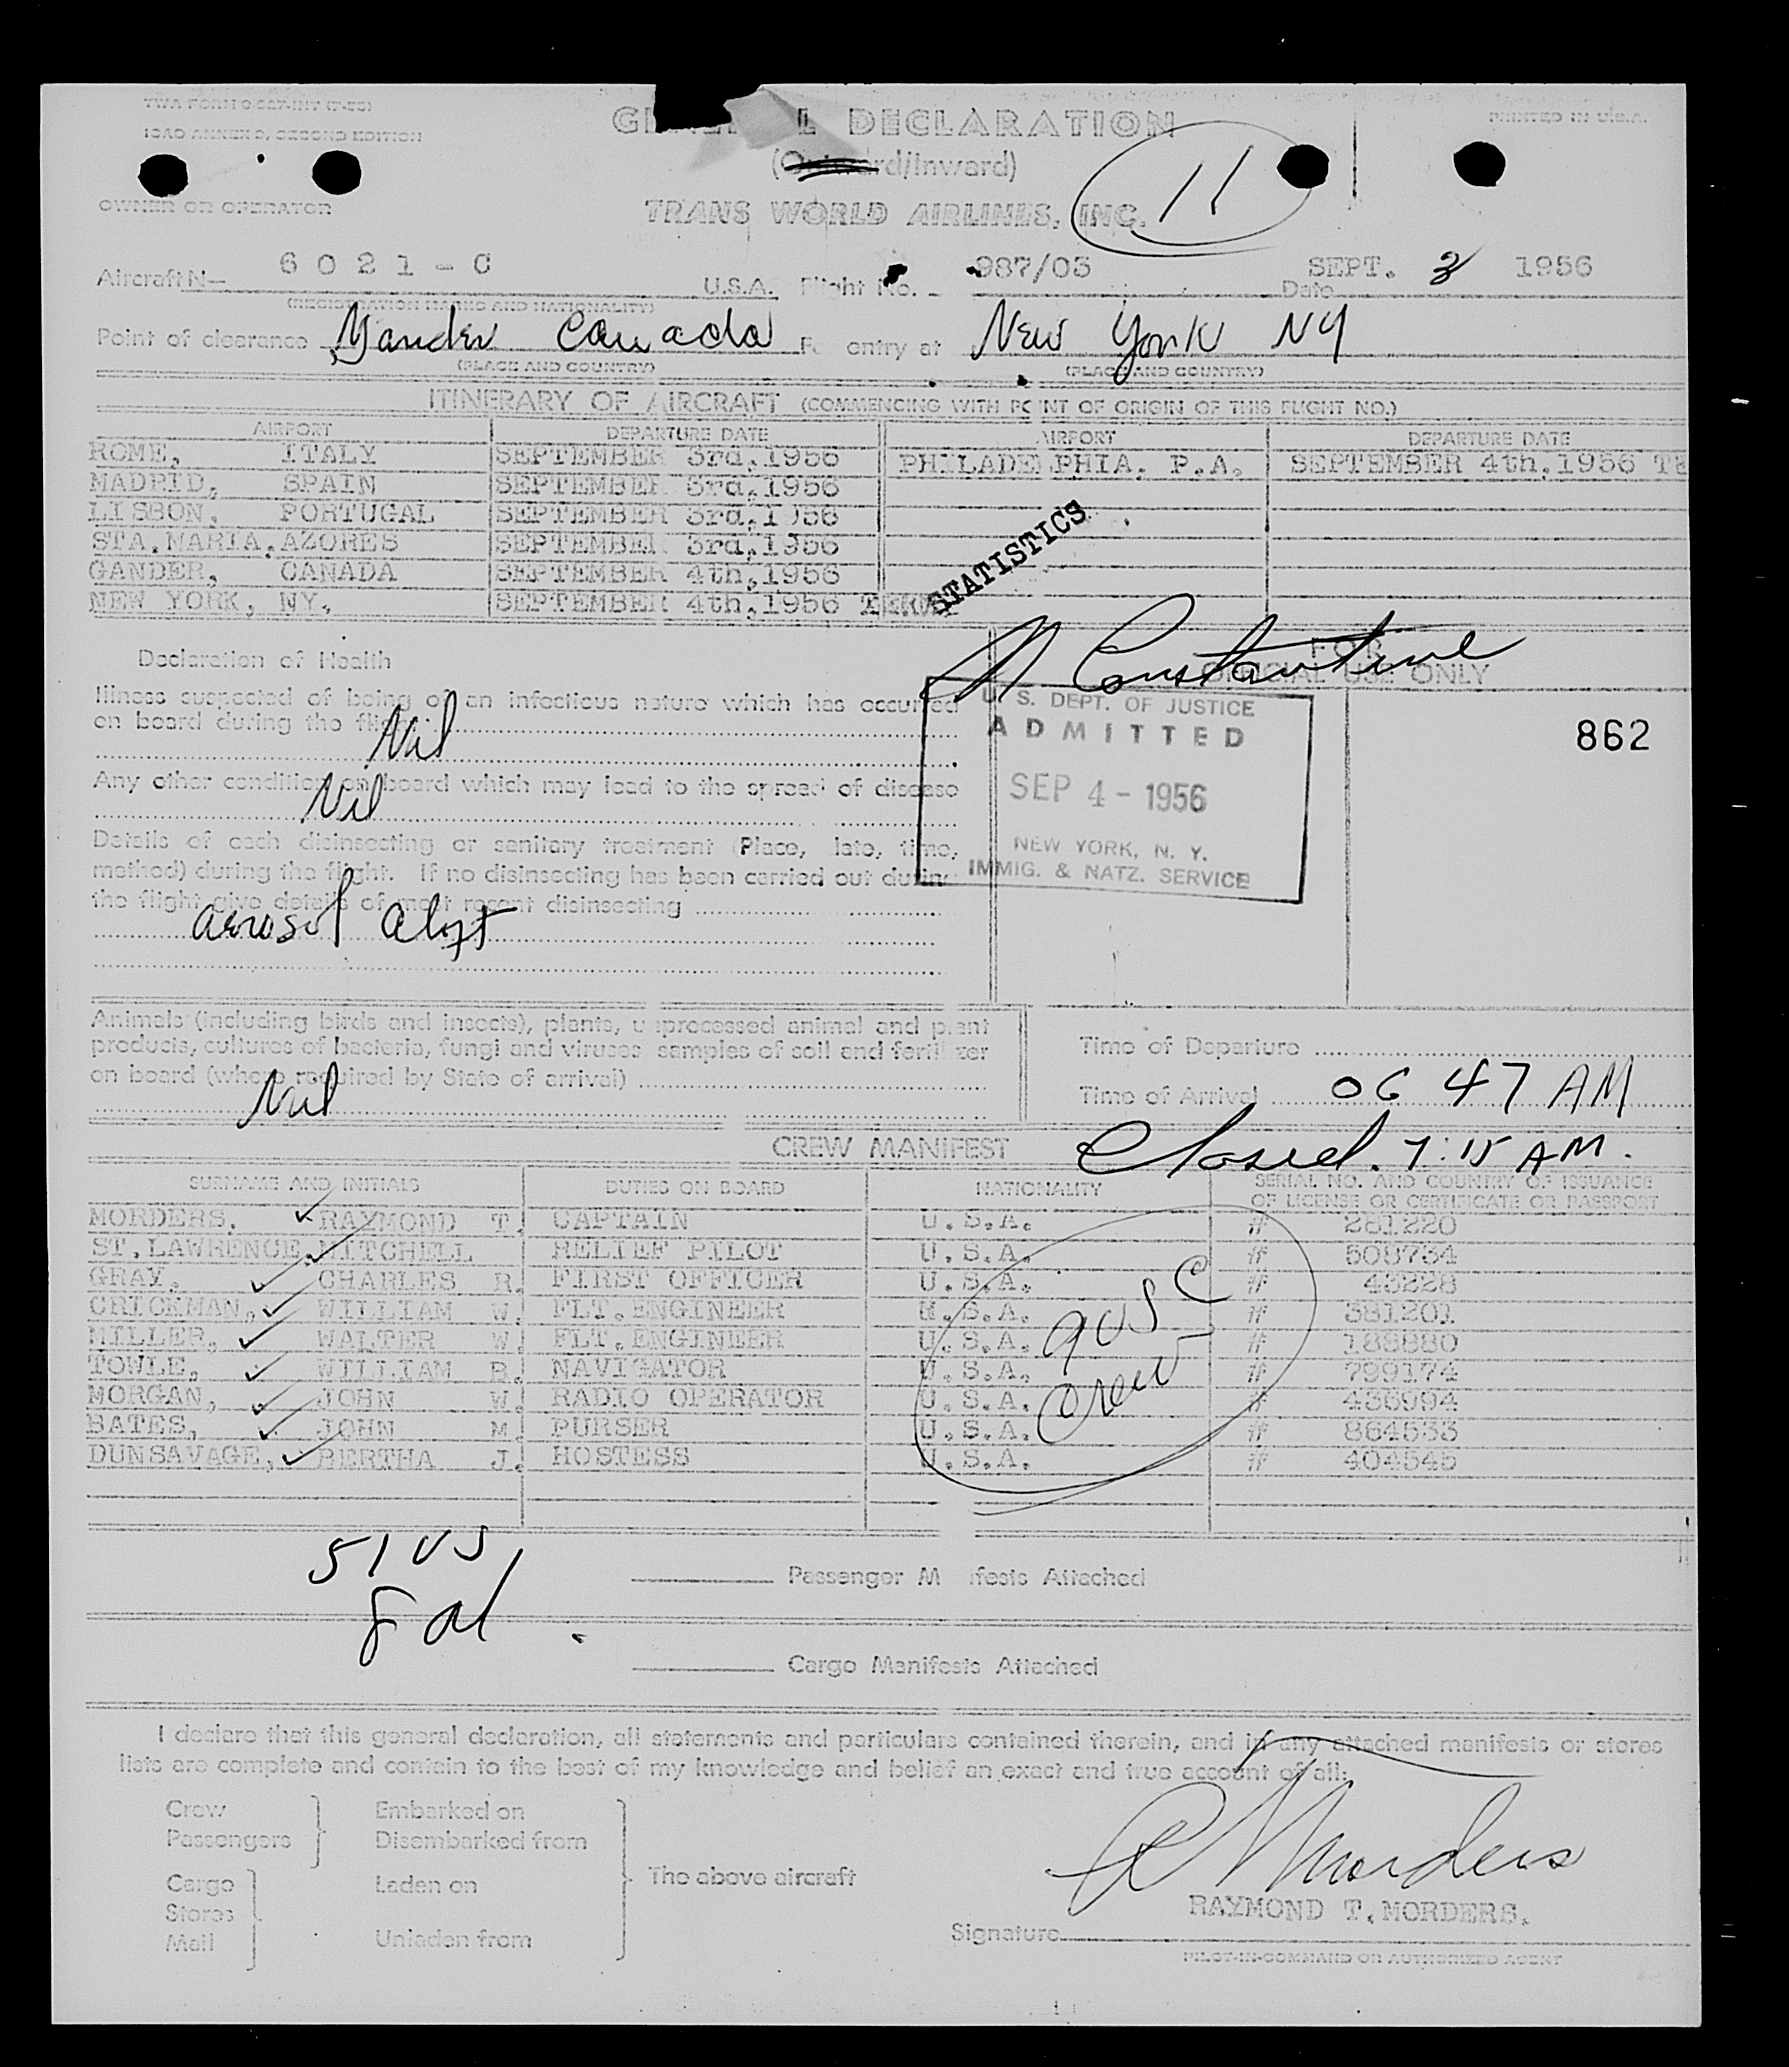 TWA FORM
ICAO ANNEX 9, SECOND EDITION
PRINTED IN U.S.A.
GENERAL DECLARATION
(Outward/Inward)
11
OWNER OR OPERATOR
TRANS WORLD AIRLINES, INC.
Aircraft N— 6021-C U.S.A. Flight No. 987/03 SEPT. 3 1956
Date
(REGISTRATION MARKS AND NATIONALITY)
Point of clearance Gander Canada For entry at New York NY
(PLACE AND COUNTRY) (PLACE AND COUNTRY)
ITINERARY OF AIRCRAFT (COMMENCING WITH POINT OF ORIGIN OF THIS FLIGHT NO.)
AIRPORT DEPARTURE DATE AIRPORT DEPARTURE DATE
ROME, ITALY SEPTEMBER 3rd,1956 PHILADELPHIA. P.A. SEPTEMBER 4th,1956
MADRID, SPAIN SEPTEMBER 3rd,1956
LISBON, PORTUGAL SEPTEMBER 3rd,1956
STA.MARIA.AZORES SEPTEMBER 3rd,1956
GANDER, CANADA SEPTEMBER 4th,1956
NEW YORK, NY. SEPTEMBER 4th,1956
STATISTICS
N Constantine
Declaration of Health
FOR
OFFICIAL USE ONLY
Illness suspected of being of an infectious nature which has occurred
on board during the flight
Nil
U. S. DEPT. OF JUSTICE
ADMITTED
SEP 4 - 1956
NEW YORK, N. Y.
IMMIG. & NATZ. SERVICE
862
Any other condition on board which may lead to the spread of disease
Nil
Details of each disinsecting or sanitary treatment (Place, date, time,
method) during the flight. If no disinsecting has been carried out during
the flight give details of most recent disinsecting
aerosol aloft
Animals (including birds and insects), plants, unprocessed animal and plant
products, cultures of bacteria, fungi and viruses, samples of soil and fertilizer
on board (where required by State of arrival)
Nil
Time of Departure
Time of Arrival 06 47 AM
Closed. 7:15 AM.
CREW MANIFEST
SURNAME AND INITIALS DUTIES ON BOARD NATIONALITY SERIAL NO. AND COUNTRY OF ISSUANCE
OF LICENSE OR CERTIFICATE OR PASSPORT
MORDERS. RAYMOND T. CAPTAIN U.S.A. # 281220
ST.LAWRENCE.MITCHELL RELIEF PILOT U.S.A. # 508734
GRAY, CHARLES R. FIRST OFFICER U.S.A. # 43228
CRICKMAN, WILLIAM W. FLT.ENGINEER U.S.A. # 381201
MILLER, WALTER W. FLT.ENGINEER U.S.A. # 188880
TOWLE, WILLIAM R. NAVIGATOR U.S.A. # 799174
MORGAN, JOHN W. RADIO OPERATOR U.S.A. # 436994
BATES, JOHN M. PURSER U.S.A. # 864533
DUNSAVAGE, BERTHA J. HOSTESS U.S.A. # 404545
9 USC
crew
51 US
8 al
Passenger Manifests Attached
Cargo Manifests Attached
I declare that this general declaration, all statements and particulars contained therein, and in any attached manifests or stores
lists are complete and contain to the best of my knowledge and belief an exact and true account of all:
Crew Embarked on
Passengers Disembarked from
The above aircraft
Cargo Laden on
Stores
Mail Unladen from
R Morders
RAYMOND T.MORDERS.
Signature
PILOT-IN-COMMAND OR AUTHORIZED AGENT